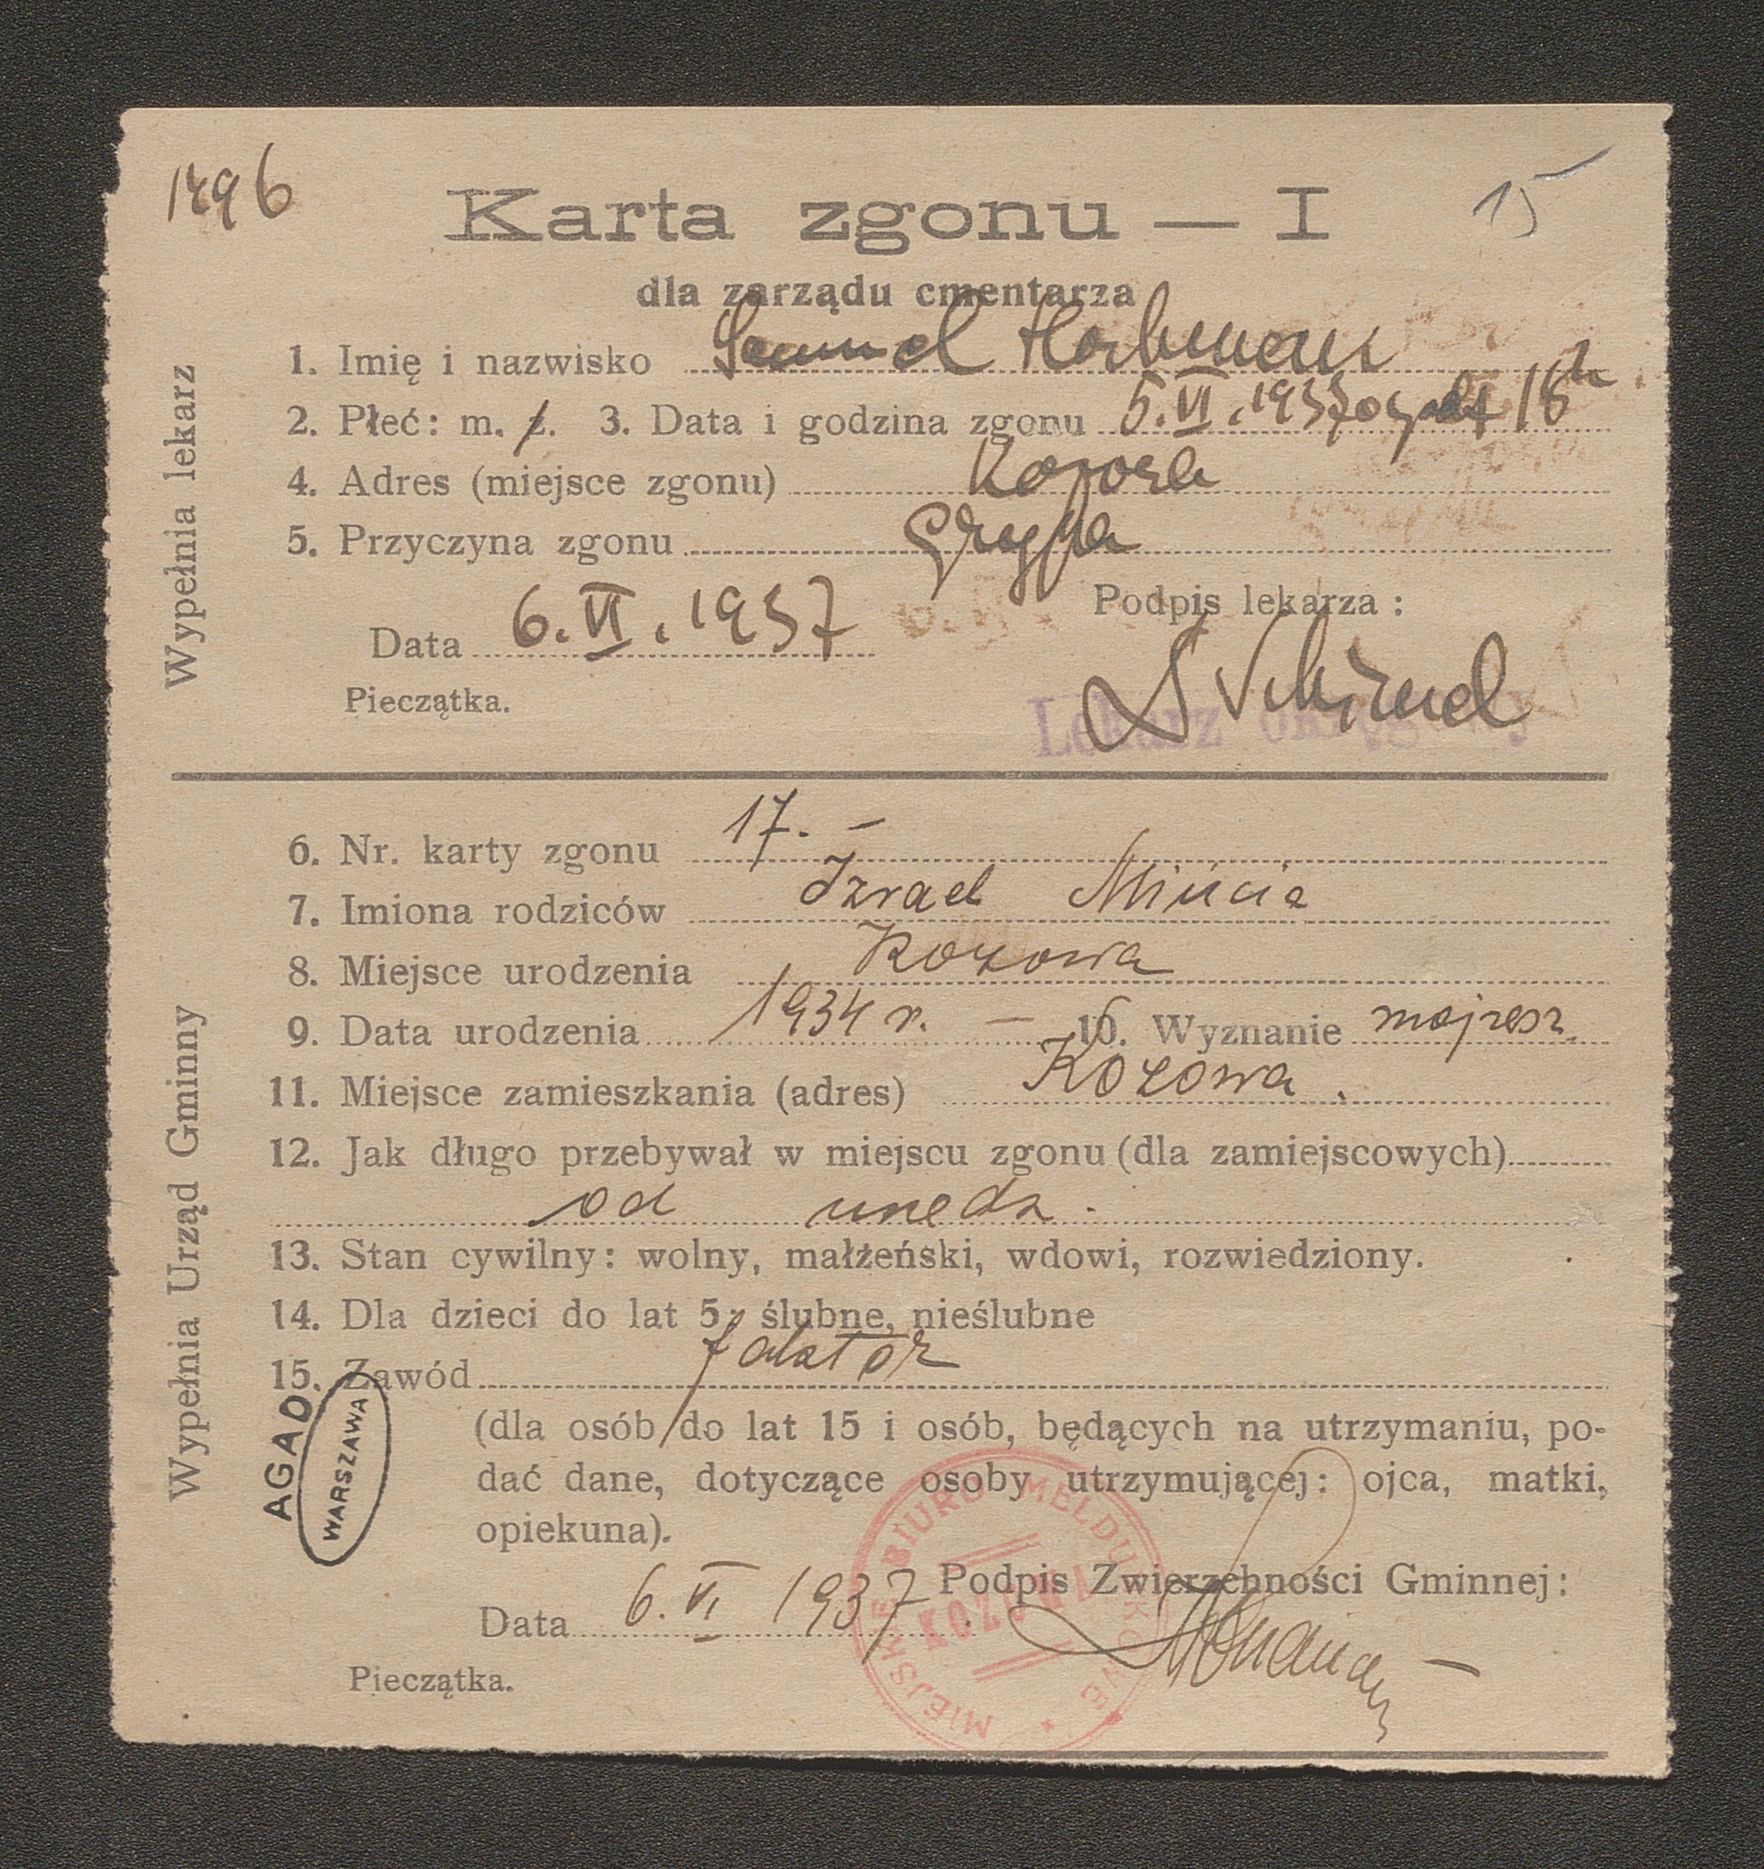 1496
15
Karta zgonu — I
dla zarządu cmentarza
Wypełnia lekarz
1. Imię i nazwisko Samuel
2. Płeć: m. ż. 3. Data i godzina zgonu 5.VI.1937 o godz 18h
4. Adres (miejsce zgonu) Kozowa
5. Przyczyna zgonu Grypa
Podpis lekarza:
Data 6.VI.1937
Pieczątka.
Lekarz okręgowy
Wypełnia Urząd Gminny
6. Nr. karty zgonu 17.—
7. Imiona rodziców Izrael Mincia
8. Miejsce urodzenia Kozowa
9. Data urodzenia 1934 r. — 10. Wyznanie mojzesz.
11. Miejsce zamieszkania (adres) Kozowa.
12. Jak długo przebywał w miejscu zgonu (dla zamiejscowych)
od urodz.
13. Stan cywilny: wolny, małżeński, wdowi, rozwiedziony.
14. Dla dzieci do lat 5: ślubne, nieślubne
15. Zawód faktor
(dla osób do lat 15 i osób, będących na utrzymaniu, po-
dać dane, dotyczące osoby utrzymującej: ojca, matki,
opiekuna).
AGAD
WARSZAWA
Podpis Zwierzchności Gminnej:
Data 6.VI 1937
MIEJSKIE BIURO MELDUNKOWE
KOZOWA
Pieczątka.